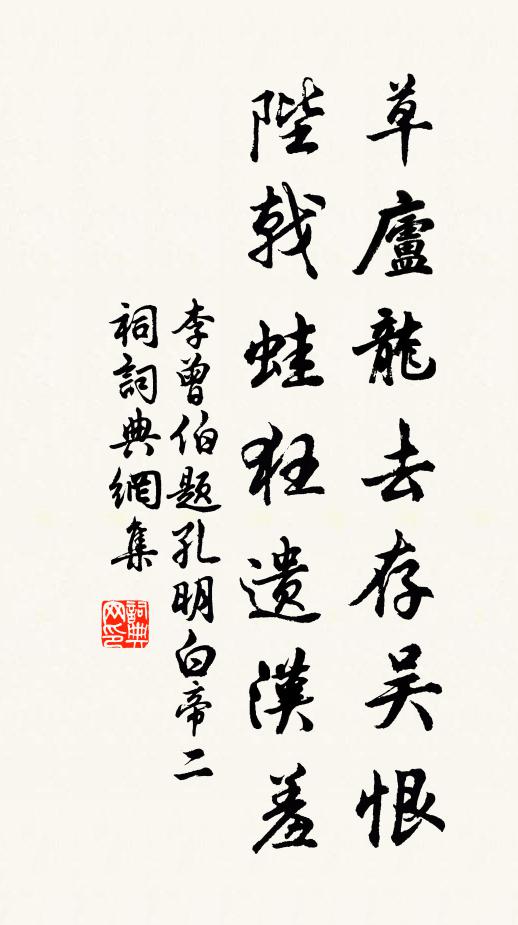 草廬龍去存吴恨
陛戟蛙狂遗漢羞
李曾伯题孔明白帝二
祠詞典網集
詞典
网印